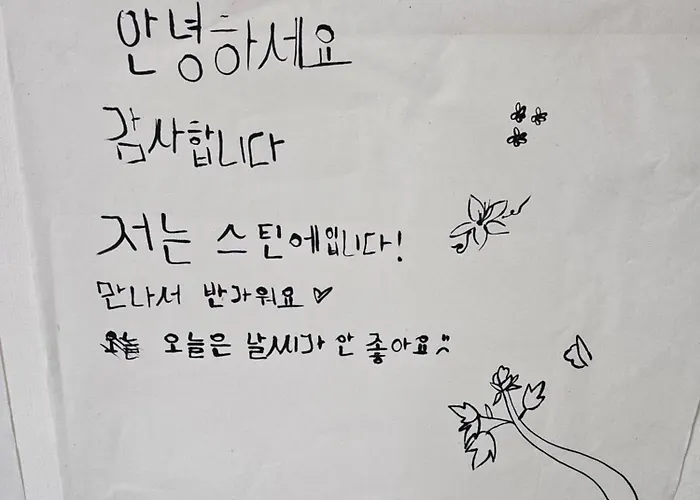 안녕하세요
감사합니다
저는 스틴에입니다!
만나서 반가워요 ♡
오늘은 날씨가 안 좋아요